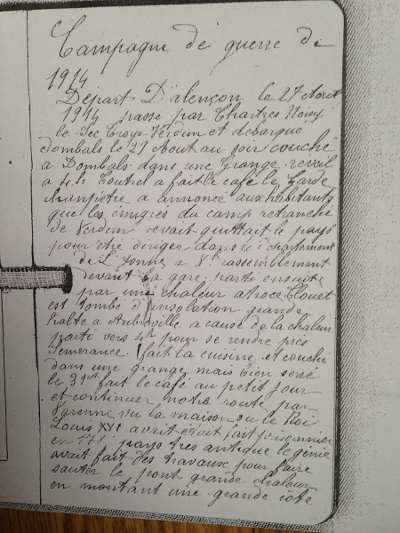 Campagne de guerre de
1914
Départ D'alençon le 27 Aout
1914 passe par Chartres Noisy
le Sec Troye Verdun et debarque
dombals le 29 Aout au soir couché
a Dombals dans une Grange reveil
a 4h Loutrel a fait le café le Garde
Champètre a annoncé aux habitants
que les du camp retranché
de Verdun devait quittait le pays
pour être diriger dans le
de L'Yonne a 8h rassemblement
devant la gare parti ensuite
par une chaleur atroce Clouet
est tombé d'insolation grande
halte a Aubreville a cause de la chaleur
parti vers 4h pour se rendre près
fait la cuisine et couché
dans une grange mais bien serré
le 31 fait le café au petit jour
et continuer notre route par
Varenne vu la maison ou le Roi
Louis XVI avait était fait prisonnier
en pays très antique le génie
avait fait des travaux pour faire
sauter le pont grande chaleur
en montant une grande côte